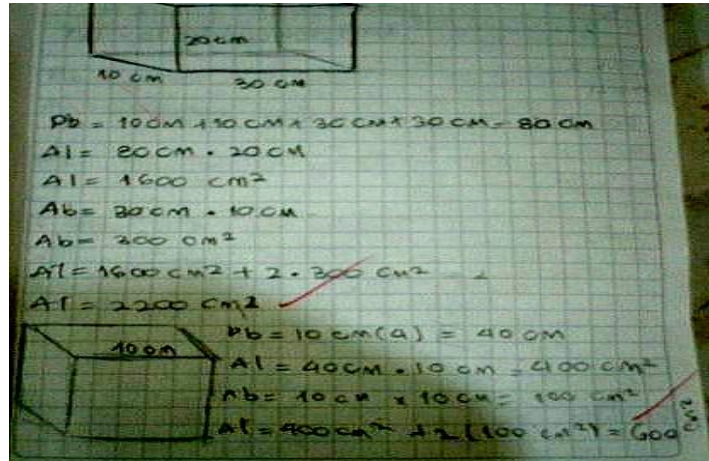 20 cm
10 cm
30 cm
Pb = 10cm + 10cm + 30cm + 30cm = 80cm
Al = 80cm · 20cm
Al = 1600 cm²
Ab = 30cm · 10cm
Ab = 300 cm²
At = 1600 cm² + 2 · 300 cm²
At = 2200 cm²
10 cm
Pb = 10cm(4) = 40cm
Al = 40cm · 10cm = 400 cm²
Ab = 10cm × 10cm = 100 cm²
At = 400 cm² + 2(100 cm²) = 600 cm²